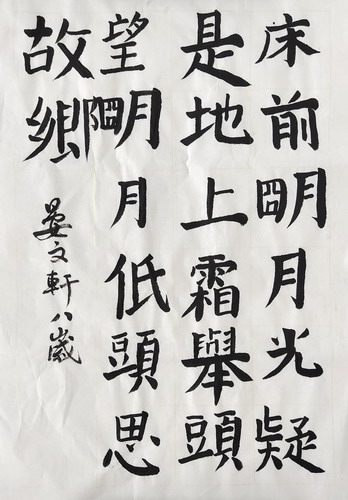 床前朙月光疑
是地上霜舉頭
望朙月低頭思
故鄉
晏文軒八歲